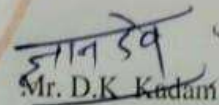 ज्ञानदेव
Mr. D.K. Kadam